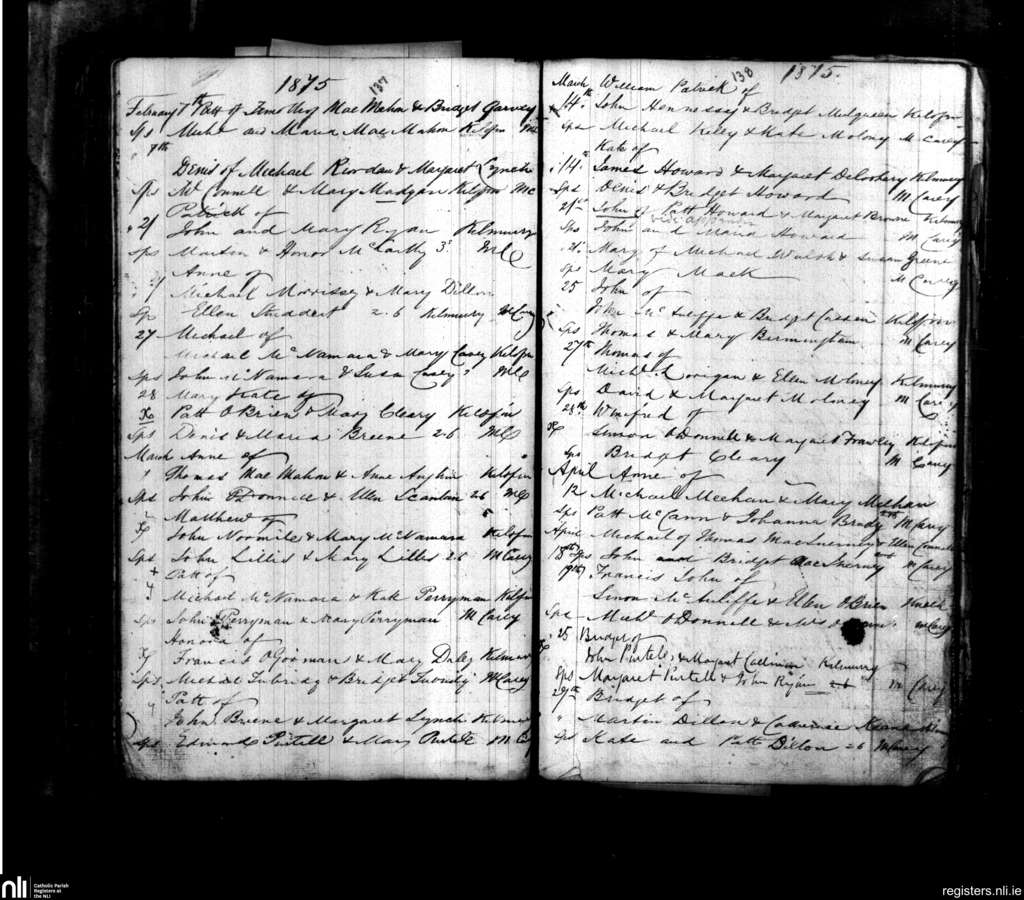 1875 137
February 7th Patt of Timothy Mac Mahon & Bridget Garvey
Sps Michl and Maria Mac Mahon Kilofin MC
" 7th
Denis of Michael Riordan & Margaret Lynch
Sps Mc Connell & Mary Madgan Kilofin MC
Patrick of
" 21 John and Mary Ryan Kilmurry
Sps Martin & Honor McCarthy 3s MC
Anne of
" 21 Michael Morrissey & Mary Dillon
Sps Ellen Studdert 2.6 Kilmurry M Carey
27 Michael of
Michael McNamara & Mary Casey Kilofin
Sps John McNamara & Susan Casey MC
28 Mary Kate of
Patt O'Brien & Mary Cleary Kilofin
Sps Denis & Maria Breene 2.6 MC
March Anne of
1 Thomas Mac Mahon & Anne Kilofin
Sps John & Ellen Scanlan 2.6 MC
2 Matthew of
John Noomile & Mary McNamara Kilofin
Sps John Lillis & Mary Lillis 2.6 M Carey
+ Patt of
4 Michael McNamara & Kate Perryman Kilofin
Sps John Perryman & Mary Perryman M Carey
Honora of
Francis O'Gorman & Mary Daley Kilmurry
Sps Michael Tubridy & Bridget Tubridy M Carey
4 Patt of
John Breene & Margaret Lynch Kilmurry
Sps Edmond Purtell & Mary Purtell M Carey
138 1875.
March William Patrick of
14th John Hennessey & Bridget Mulqueen Kilofin
Sps Michael Kelly & Kate Molony M Carey
Kate of
" 14th James Howard & Margaret Deloohery Kilmurry
Sps Denis & Bridget Howard M Carey
21st John of Patt Howard & Margaret Browne Kilmurry
vide appendix
Sps John and Maria Howard M Carey
" 21 Mary of Michael Walsh & Susan Greene
Sps Mary Mack M Carey
25 John of
John McAuliffe & Bridget Kilofin
Sps Thomas & Mary Birmingham M Carey
27th Thomas of
Michl Lorigan & Ellen Moloney Kilmurry
Sps David & Margaret Moloney M Carey
28th Winefred of
Simon O'Donnell & Margaret Frawley Kilofin
Sps Bridget Cleary M Carey
April Anne of
12 Michael Meehan & Mary Meehan
Sps Patt McCann & Johanna Brody M Carey
April Michael of Thomas MacInerney & Ellen
18th Sps John and Bridget MacInerney M Carey
19th Francis John of
Simon McAuliffe & Ellen O'Brien Knock
Sps Michl O'Donnell & Mrs M Carey
" 25 Bridget of
John Purtell & Margaret Cullinan Kilmurry
Sps Margaret Purtell & John Ryan 2.6 M Carey
29th Bridget of
" Martin Dillon & Catherine
Sps Kate and Patt Dillon 2.6 M Carey
nli
Catholic Parish
Registers at
the NLI
registers.nli.ie